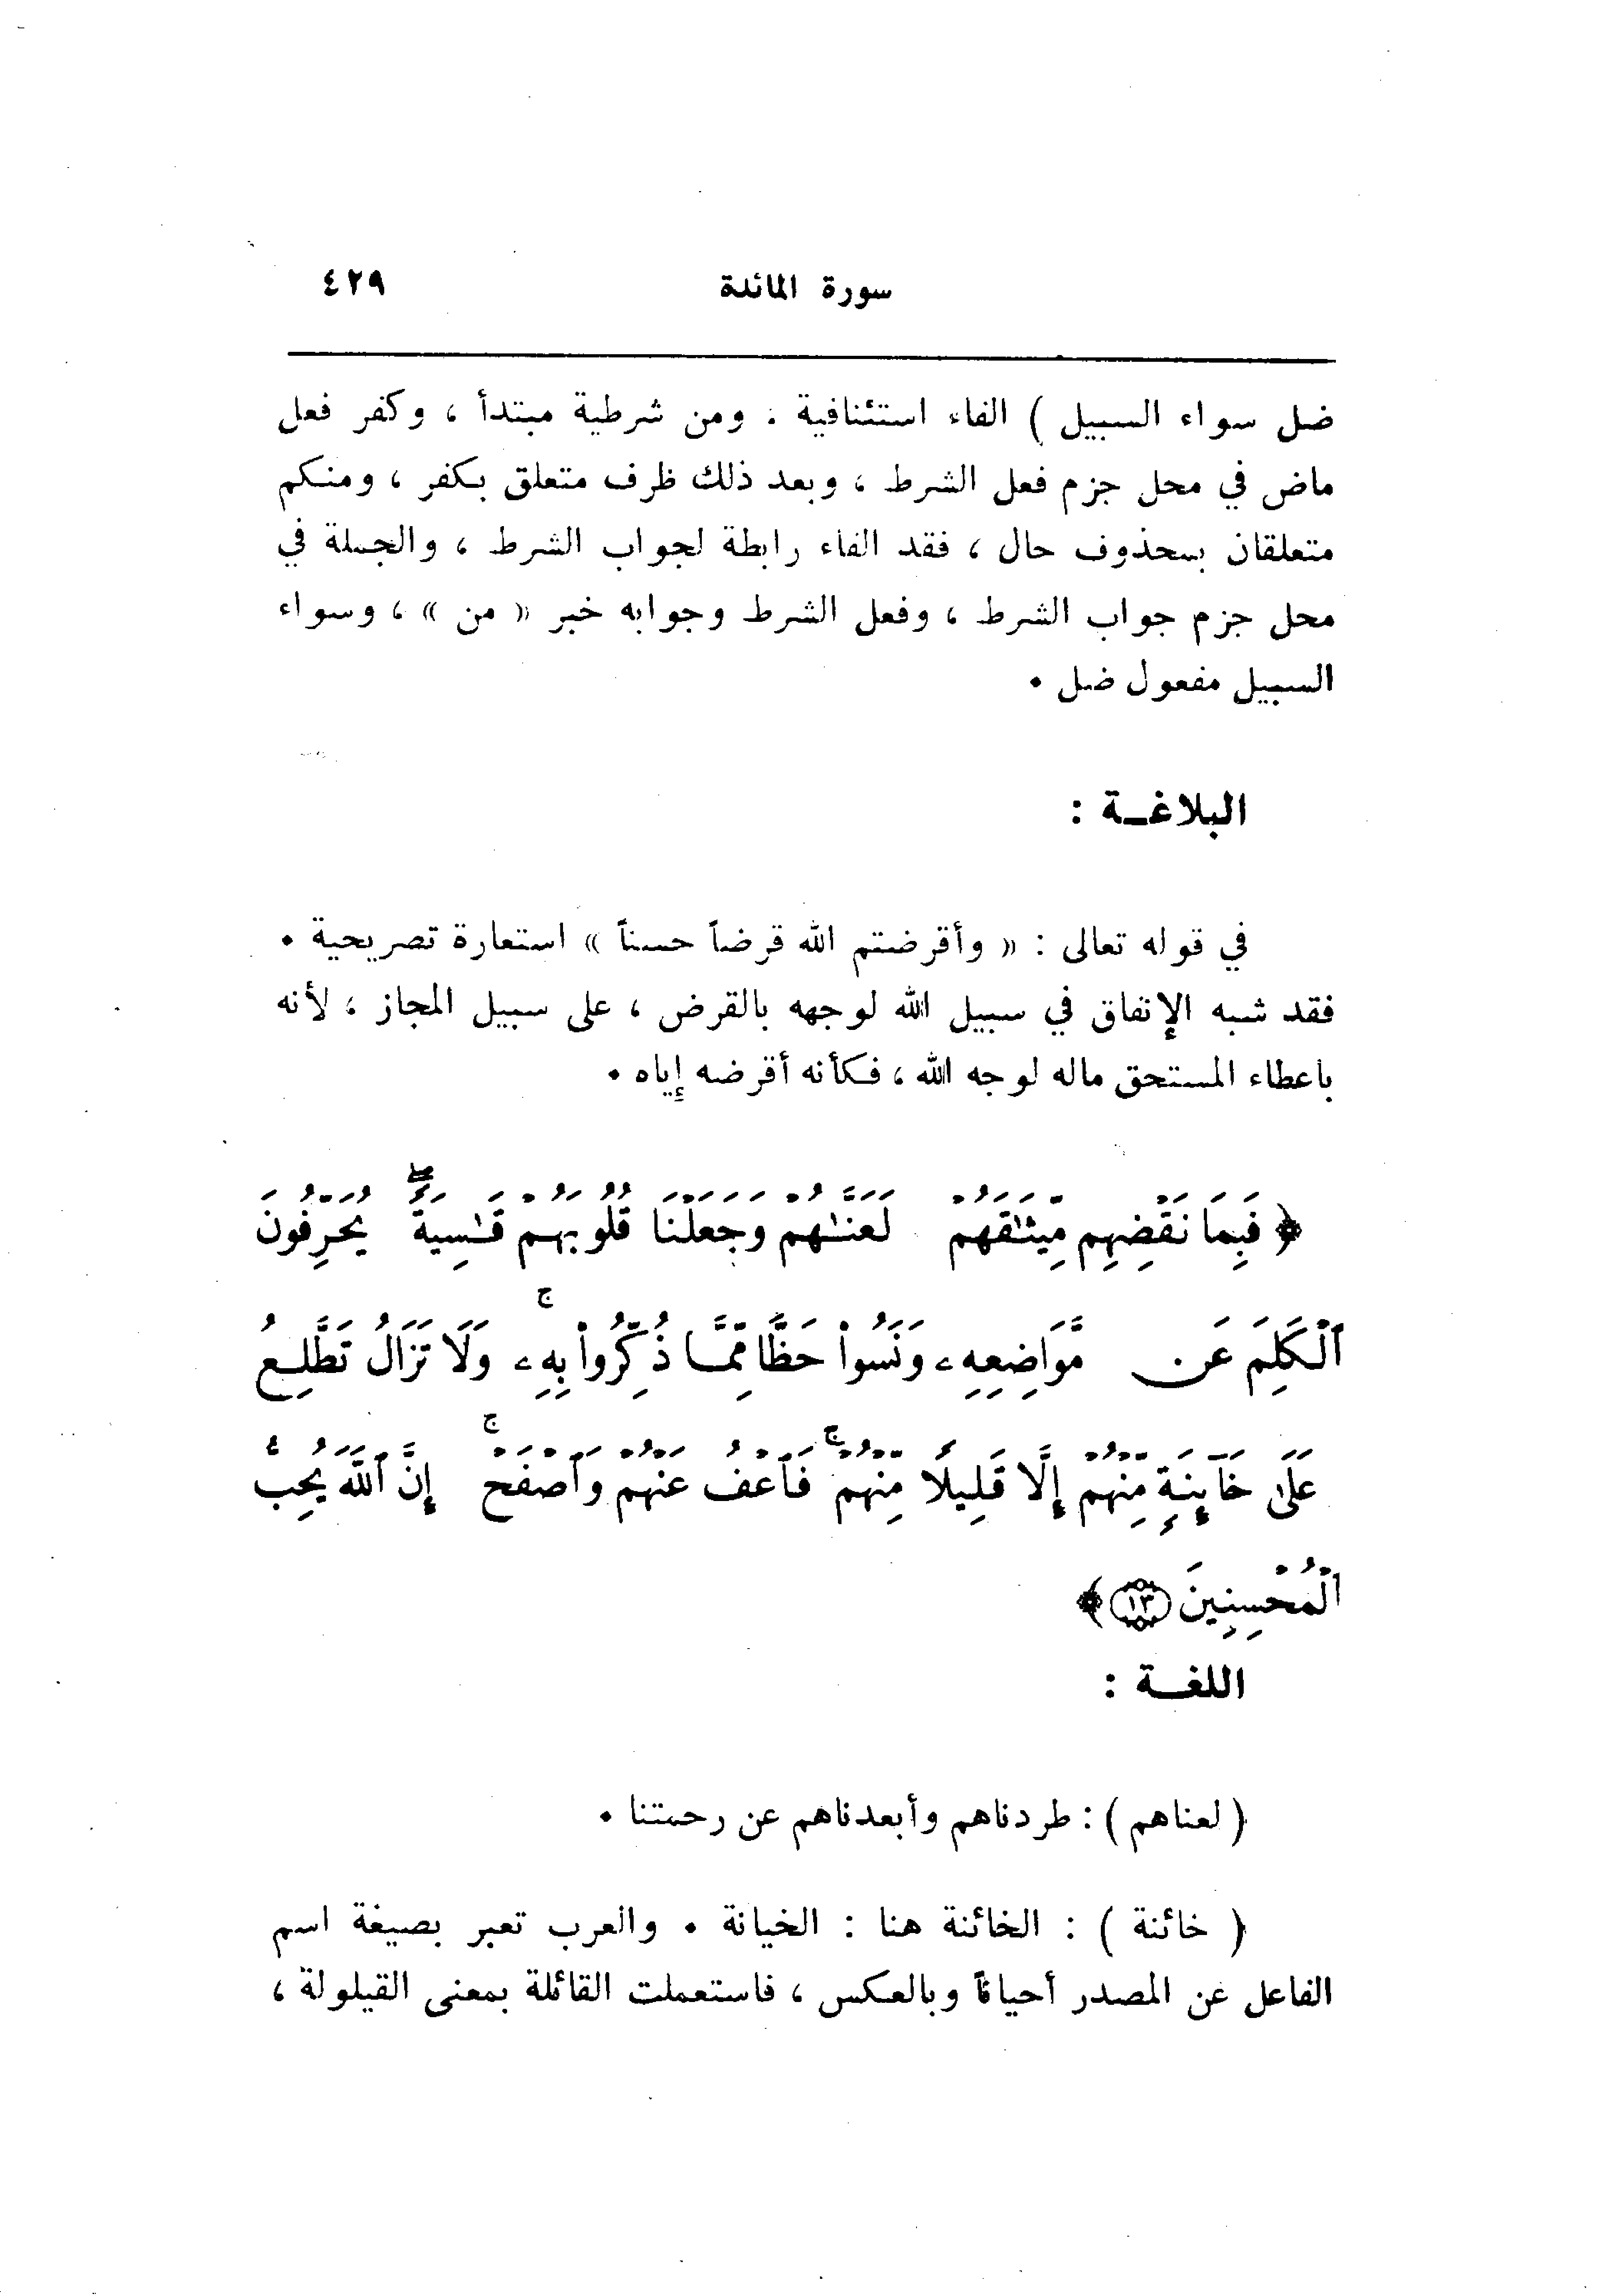 سورة المائدة ٤٢٩
ضل سواء السبيل ) الفاء استئنافية . ومن شرطية مبتدأ ، وكفر فعل
ماض في محل جزم فعل الشرط ، وبعد ذلك ظرف متعلق بكفر ، ومنكم
متعلقان بمحذوف حال ، فقد الفاء رابطة لجواب الشرط ، والجملة في
محل جزم جواب الشرط ، وفعل الشرط وجوابه خبر « من » ، وسواء
السبيل مفعول ضل .
البلاغـة :
في قوله تعالى : « وأقرضتم الله قرضاً حسناً » استعارة تصريحية .
فقد شبه الإنفاق في سبيل الله لوجهه بالقرض ، على سبيل المجاز ، لأنه
باعطاء المستحق ماله لوجه الله ، فكأنه أقرضه إياه .
﴿ فَبِمَا نَقْضِهِم مِّيثَٰقَهُمْ لَعَنَّٰهُمْ وَجَعَلْنَا قُلُوبَهُمْ قَٰسِيَةً ۖ يُحَرِّفُونَ
ٱلْكَلِمَ عَن مَّوَاضِعِهِۦ وَنَسُوا۟ حَظًّا مِّمَّا ذُكِّرُوا۟ بِهِۦ ۚ وَلَا تَزَالُ تَطَّلِعُ
عَلَىٰ خَآئِنَةٍ مِّنْهُمْ إِلَّا قَلِيلًا مِّنْهُمْ ۚ فَٱعْفُ عَنْهُمْ وَٱصْفَحْ ۚ إِنَّ ٱللَّهَ يُحِبُّ
ٱلْمُحْسِنِينَ ١٣ ﴾
اللغـة :
( لعناهم ) : طردناهم وأبعدناهم عن رحمتنا .
( خائنة ) : الخائنة هنا : الخيانة . والعرب تعبر بصيغة اسم
الفاعل عن المصدر أحياناً وبالعكس ، فاستعملت القائلة بمعنى القيلولة ،